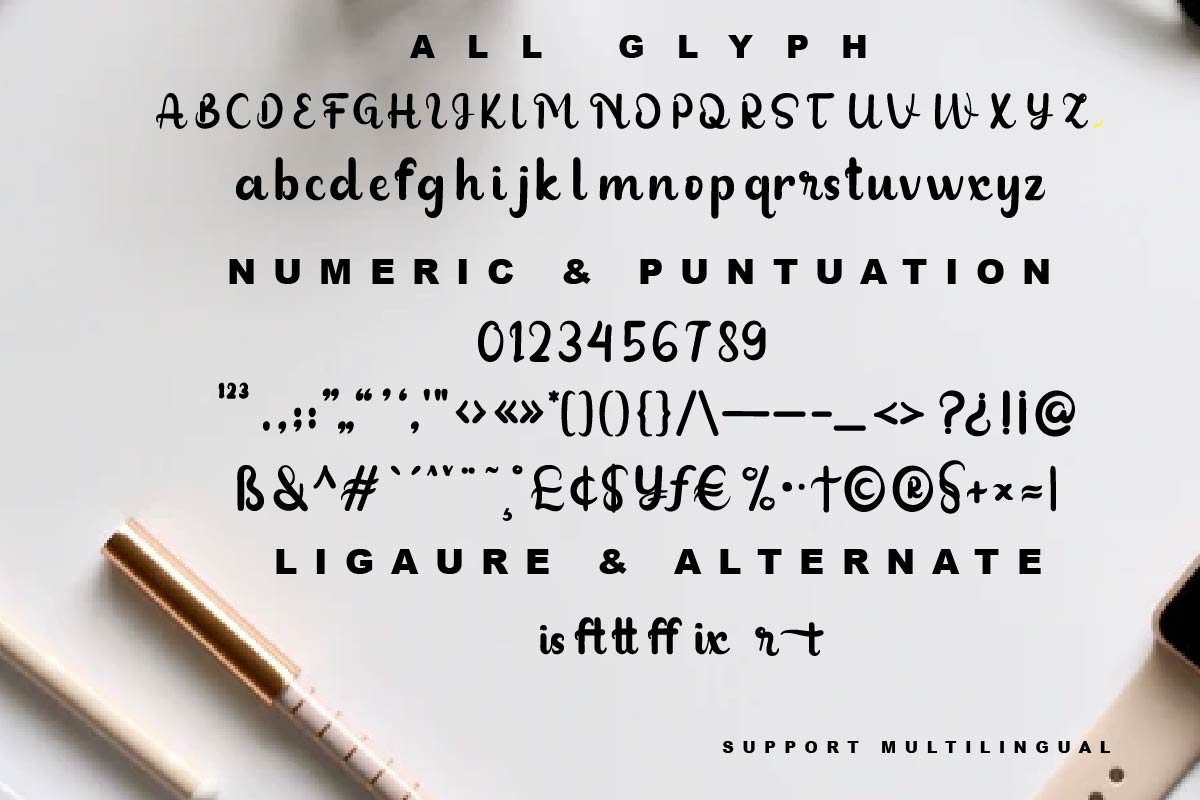 ALL GLYPH
ABCDEFGHIJKLMNOPQRSTUVWXYZ
abcdefghijklmnopqrrstuvwxyz
NUMERIC & PUNTUATION
0123456789
¹²³ . , ; : ” „ “ ’ ‘ ‚ ' " ‹ › « » * [ ] ( ) { } / \ — – - _ < > ? ¿ ! ¡ @
ß & ^ # ` ´ ˆ ˇ ¨ ˜ ° ¸ £ ¢ $ ¥ ƒ € % · · † © ® § + × ≈ |
LIGAURE & ALTERNATE
is ft tt ff ix r t
SUPPORT MULTILINGUAL